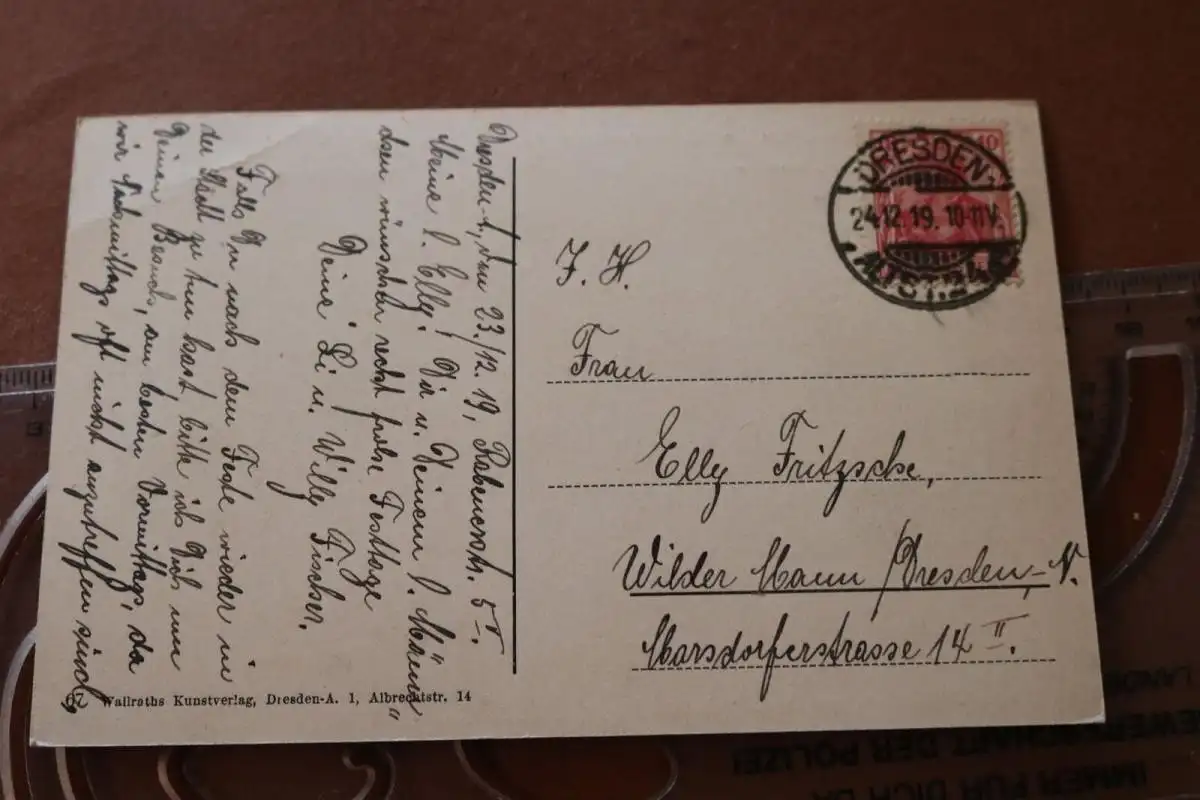 Dresden-A, den 23./12.19, Rabenerstr. 5
Meine l. Elly! Dir u. Deinem l. „Männe“
chen wünschen recht frohe Festtage
Deine Li u. Willy Fischer.
Falls Du nach dem Feste wieder in
der Stadt zu tun hast, bitte ich Dich um
Deinen Besuch, am besten Vormittags, da
wir Nachmittags oft nicht anzutreffen sind.
67 Wallroths Kunstverlag, Dresden-A. 1, Albrechtstr. 14
10
DRESDEN-
24.12.19. 10-11V.
ALTST. 24
F. H.
Frau
Elly Fritzsche,
Wilder Mann / Dresden-N.
Marsdorferstrasse 14 II.
GEWERKSCHAFT DER POLIZEI
IMMER FÜR DICH DA